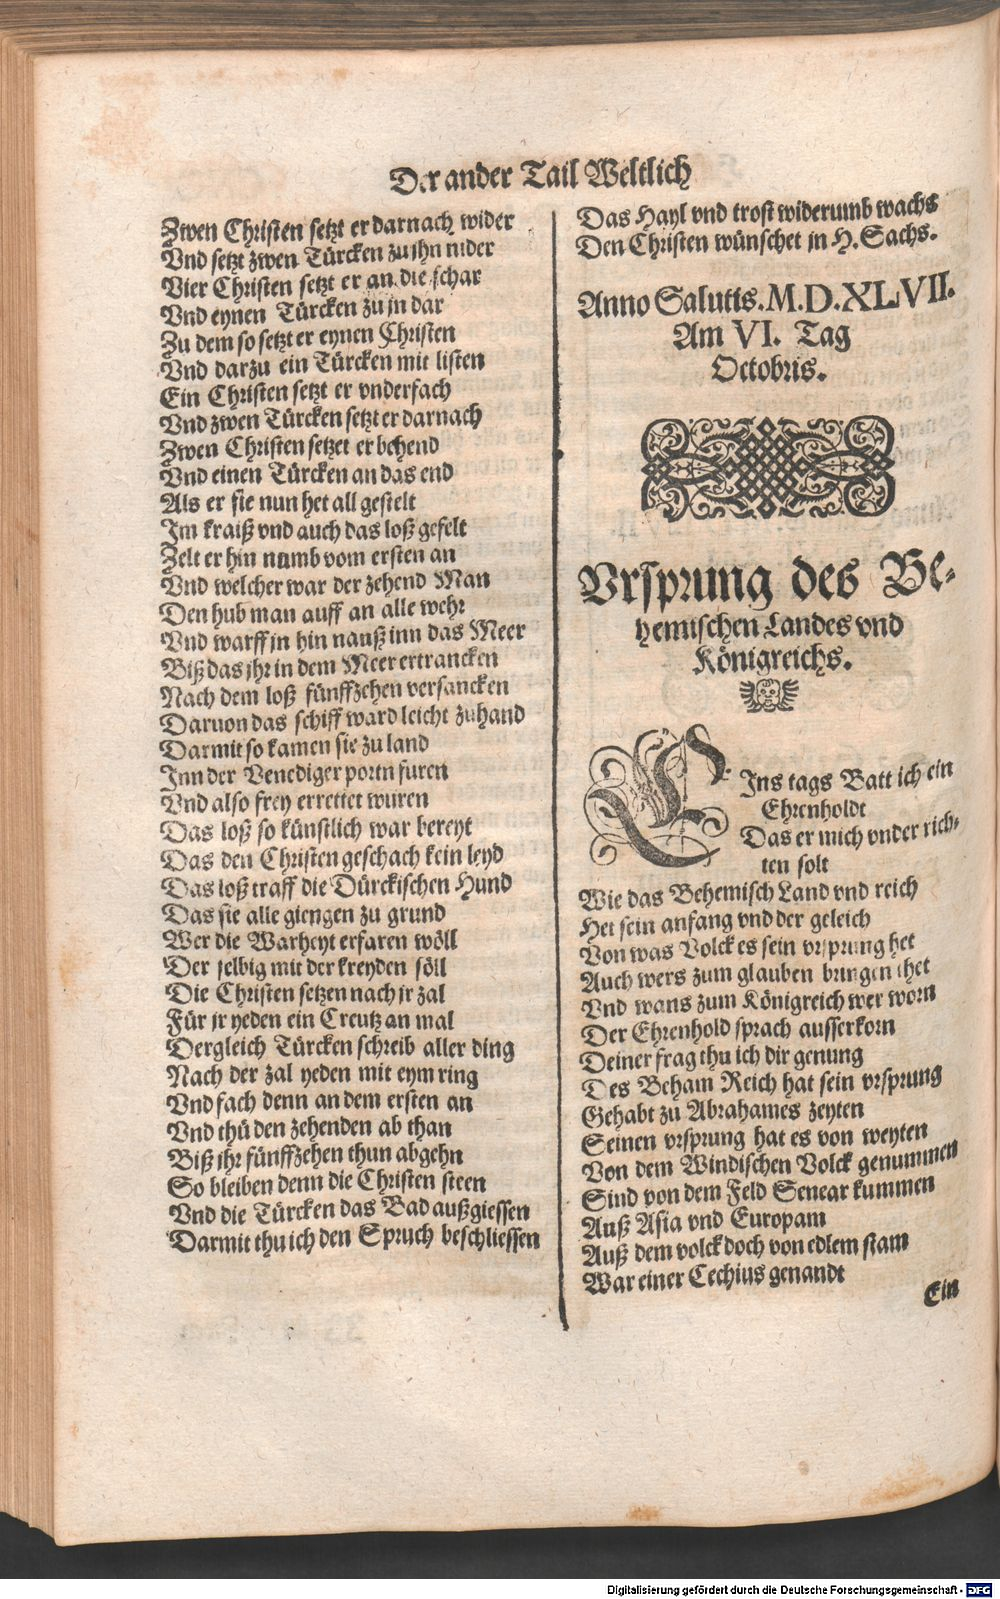 Der ander Tail Weltlich
Zwen Christen setzt er darnach wider
Vnd setzt zwen Türcken zu ihn nider
Vier Christen setzt er an die schar
Vnd eynen Türcken zu jn dar
Zu dem so setzt er eynen Christen
Vnd darzu ein Türcken mit listen
Ein Christen setzt er vnderfach
Vnd zwen Türcken setzt er darnach
Zwen Christen setzet er behend
Vnd einen Türcken an das end
Als er sie nun het all gestelt
Im kraiß vnd auch das loß gefelt
Zelt er hin numb vom ersten an
Vnd welcher war der zehend Man
Den hub man auff an alle wehr
Vnd warff jn hin nauß inn das Meer
Biß das jhr in dem Meer ertrancken
Nach dem loß fünffzehen versancken
Daruon das schiff ward leicht zuhand
Darmit so kamen sie zu land
Inn der Venediger portn furen
Vnd also frey errettet wuren
Das loß so künstlich war bereyt
Das den Christen geschach kein leyd
Das loß traff die Dürckischen Hund
Das sie alle giengen zu grund
Wer die Warheyt erfaren wöll
Der selbig mit der kreyden söll
Die Christen setzen nach jr zal
Für jr yeden ein Creutz an mal
Dergleich Türcken schreib aller ding
Nach der zal yeden mit eym ring
Vnd fach denn an dem ersten an
Vnd thů den zehenden ab than
Biß jhr fünffzehen thun abgehn
So bleiben denn die Christen steen
Vnd die Türcken das Bad außgiessen
Darmit thu ich den Spruch beschliessen
Das Hayl vnd trost widerumb wachs
Den Christen wünschet jn H. Sachs.
Anno Salutis. M.D.XLVII.
Am VI. Tag
Octobris.
Vrsprung des Be-
hemischen Landes vnd
Königreichs.
EIns tags Batt ich ein
Ehrenholdt
Das er mich vnder rich-
ten solt
Wie das Behemisch Land vnd reich
Het sein anfang vnd der geleich
Von was Volck es sein vrsprung het
Auch wers zum glauben bringen thet
Vnd wans zum Königreich wer worn
Der Ehrenhold sprach ausserkorn
Deiner frag thu ich dir genung
Des Beham Reich hat sein vrsprung
Gehabt zu Abrahames zeyten
Seinen vrsprung hat es von weyten
Von dem Windischen Volck genummen
Sind von dem Feld Senear kummen
Auß Asia vnd Europam
Auß dem volck doch von edlem stam
War einer Cechius genandt
Ein
Digitalisierung gefördert durch die Deutsche Forschungsgemeinschaft - DFG